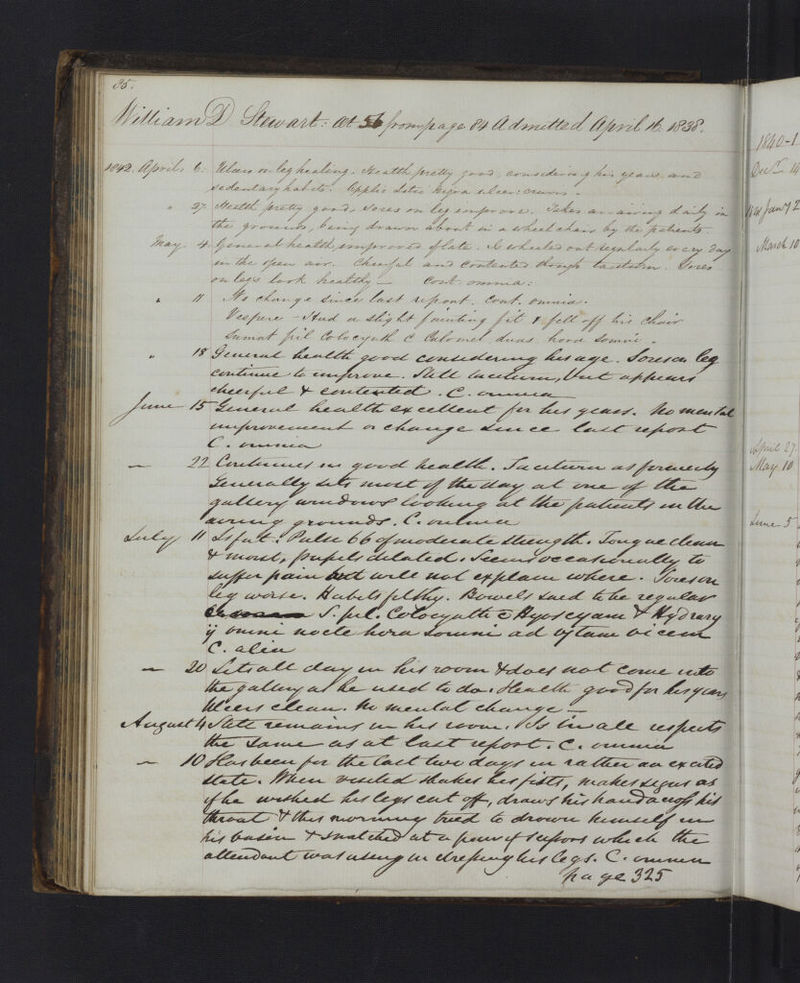 35.
William D Stewart. Æt 56 from page 84 Admitted April 16. 1838.
1842. April 6. Ulcers on leg healing. Health pretty good, considering his years and
sedentary habits. Applic Lotio Nigra ulcer: cruris.
" 27 Health pretty good. Sores on leg improve. Takes an airing daily in
the grounds, being drawn about in a wheel chair by the patients.
May 4. General health improved of late. Is wheeled out regularly every day
in the open air. Cheerful and contented though taciturn. Sores
on legs look healthy — Cont. omnia:
" 11 No change since last report. Cont. omnia.
Vespere – Had a slight fainting fit & fell off his chair
Sumat pil Colocynth c Calomel duas hora somni.
" 18 General health good considering his age. Sores on leg
continue to improve. Still taciturn, but appears
cheerful & contented. C. omnia
June 15 General health excellent for his years. No mental
improvement or change since last report
C. omnia
— 22 Continues in good health. Taciturn as formerly
Generally sits most of the day at one of the
gallery windows looking at the patients in the
airing grounds. C. omnia
July 11 Is fat. Pulse 66 of moderate strength. Tongue clean
& moist, pupils dilated. Seems occasionally to
suffer pain but will not explain where. Sores on
leg worse. Habits filthy. Bowels said to be regular
S. pil. Colocynth c Hyoscyam & Hydrarg
ij omni nocte hora somni ad vicem
C. alia
— 20 Sits all day in his room & does not come into
the gallery as he used to do. Health good for his years
Ulcers clean. No mental change —
August 4 Still remains in his room. Is in all respects
the same as at last report. C. omnia
— 10 Has been for the last two days in rather an excited
state. When visited shakes his fists, makes signs as
if he wished his legs cut off, draws his hand across his
throat & this morning tried to drown himself in
his basin & snatched at a pair of scissors which the
attendant was using in dressing his legs. C. omnia
page 325
1840-1
Decr 14
Jany 2
March 10
April 27
May 10
June 5